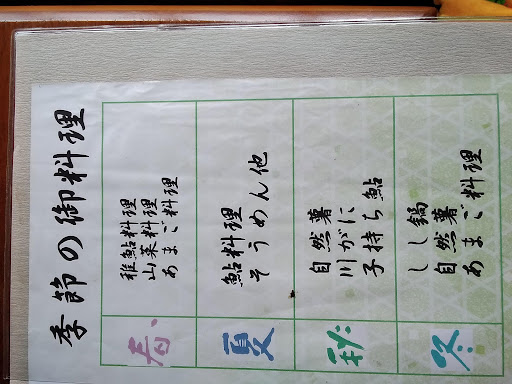 季節の御料理
春
稚鮎料理
山菜料理
あまご料理
夏
鮎料理
そうめん他
秋
自然薯
川がに
子持ち鮎
冬
しし鍋
自然薯
あまご料理